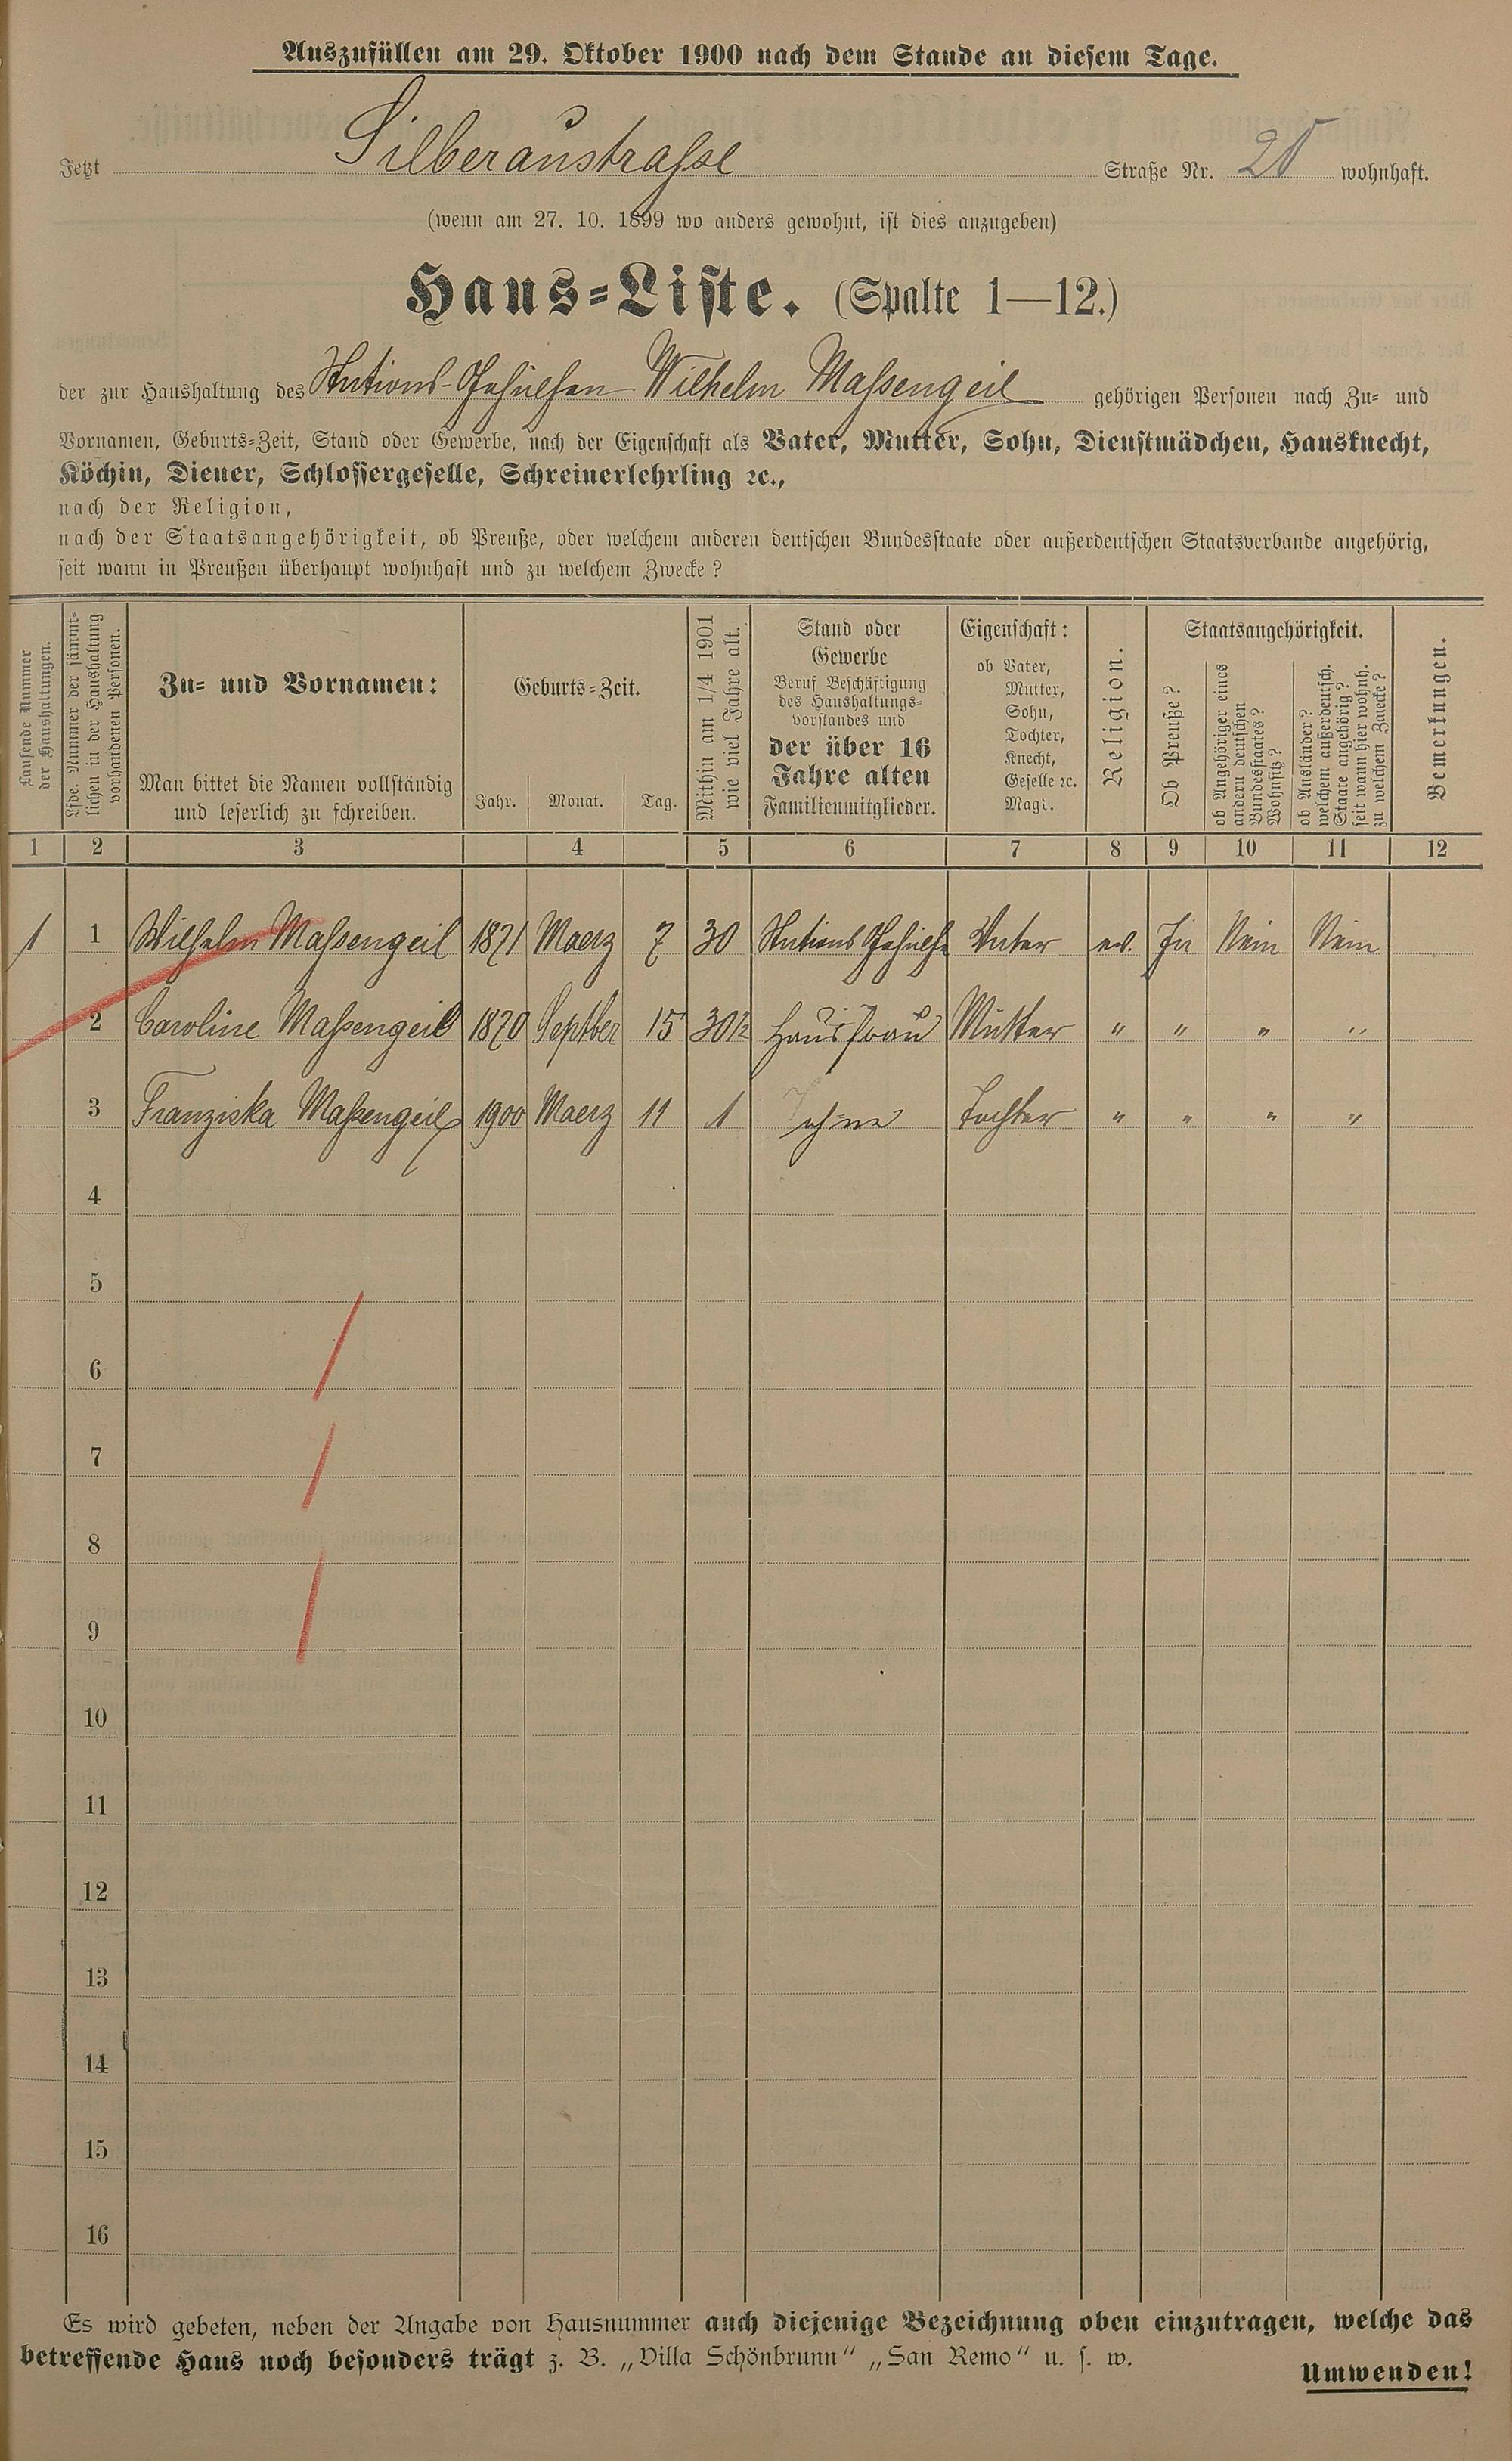 Auszufüllen am 29. Oktober 1900 nach dem Stande an diesem Tage.
Jetzt Silberaustraſse Straße Nr. wohnhaft.
(wenn am 27. 10. 1899 wo anders gewohnt, ist dies anzugeben)
Haus-Liste. (Spalte 1—12.)
der zur Haushaltung des Stations-Gehülfen Wilhelm Maſsengeil gehörigen Personen nach Zu- und
Vornamen, Geburts-Zeit, Stand oder Gewerbe, nach der Eigenschaft als Vater, Mutter, Sohn, Dienstmädchen, Hausknecht,
Köchin, Diener, Schlossergeselle, Schreinerlehrling ꝛc.,
nach der Religion,
nach der Staatsangehörigkeit, ob Preuße, oder welchem anderen deutschen Bundesstaate oder außerdeutschen Staatsverbande angehörig,
seit wann in Preußen überhaupt wohnhaft und zu welchem Zwecke?
Laufende Nummer
der Haushaltungen.
lfde. Nummer der sämmt-
lichen in der Haushaltung
vorhandenen Personen.
Zu- und Vornamen:
Man bittet die Namen vollständig
und leserlich zu schreiben.
Geburts-Zeit.
Jahr. Monat. Tag.
Mithin am 1/4 1901
wie viel Jahre alt.
Stand oder
Gewerbe
Beruf Beschäftigung
des Haushaltungs-
vorstandes und
der über 16
Jahre alten
Familienmitglieder.
Eigenschaft:
ob Vater,
Mutter,
Sohn,
Tochter,
Knecht,
Geselle ꝛc.
Magd.
Religion.
Staatsangehörigkeit.
Ob Preuße?
ob Angehöriger eines
andern deutschen
Bundesstaates?
Wohnsitz?
ob Ausländer?
welchem außerdeutsch.
Staate angehörig?
seit wann hier wohnh.
zu welchem Zwecke?
Bemerkungen.
1 2 3 4 5 6 7 8 9 10 11 12
1 1 Wilhelm Maſsengeil 1871 Maerz 7 30 Stations Gehülfe Vater ev. Ja Nein Nein
2 Caroline Maſsengeil 1870 Septber 15 30½ Hausfrau Mutter " " " "
3 Franziska Maſsengeil 1900 Maerz 11 1 ohne Tochter " " " "
4
5
6
7
8
9
10
11
12
13
14
15
16
Es wird gebeten, neben der Angabe von Hausnummer auch diejenige Bezeichnung oben einzutragen, welche das
betreffende Haus noch besonders trägt z. B. „Villa Schönbrunn“ „San Remo“ u. s. w.
Umwenden!